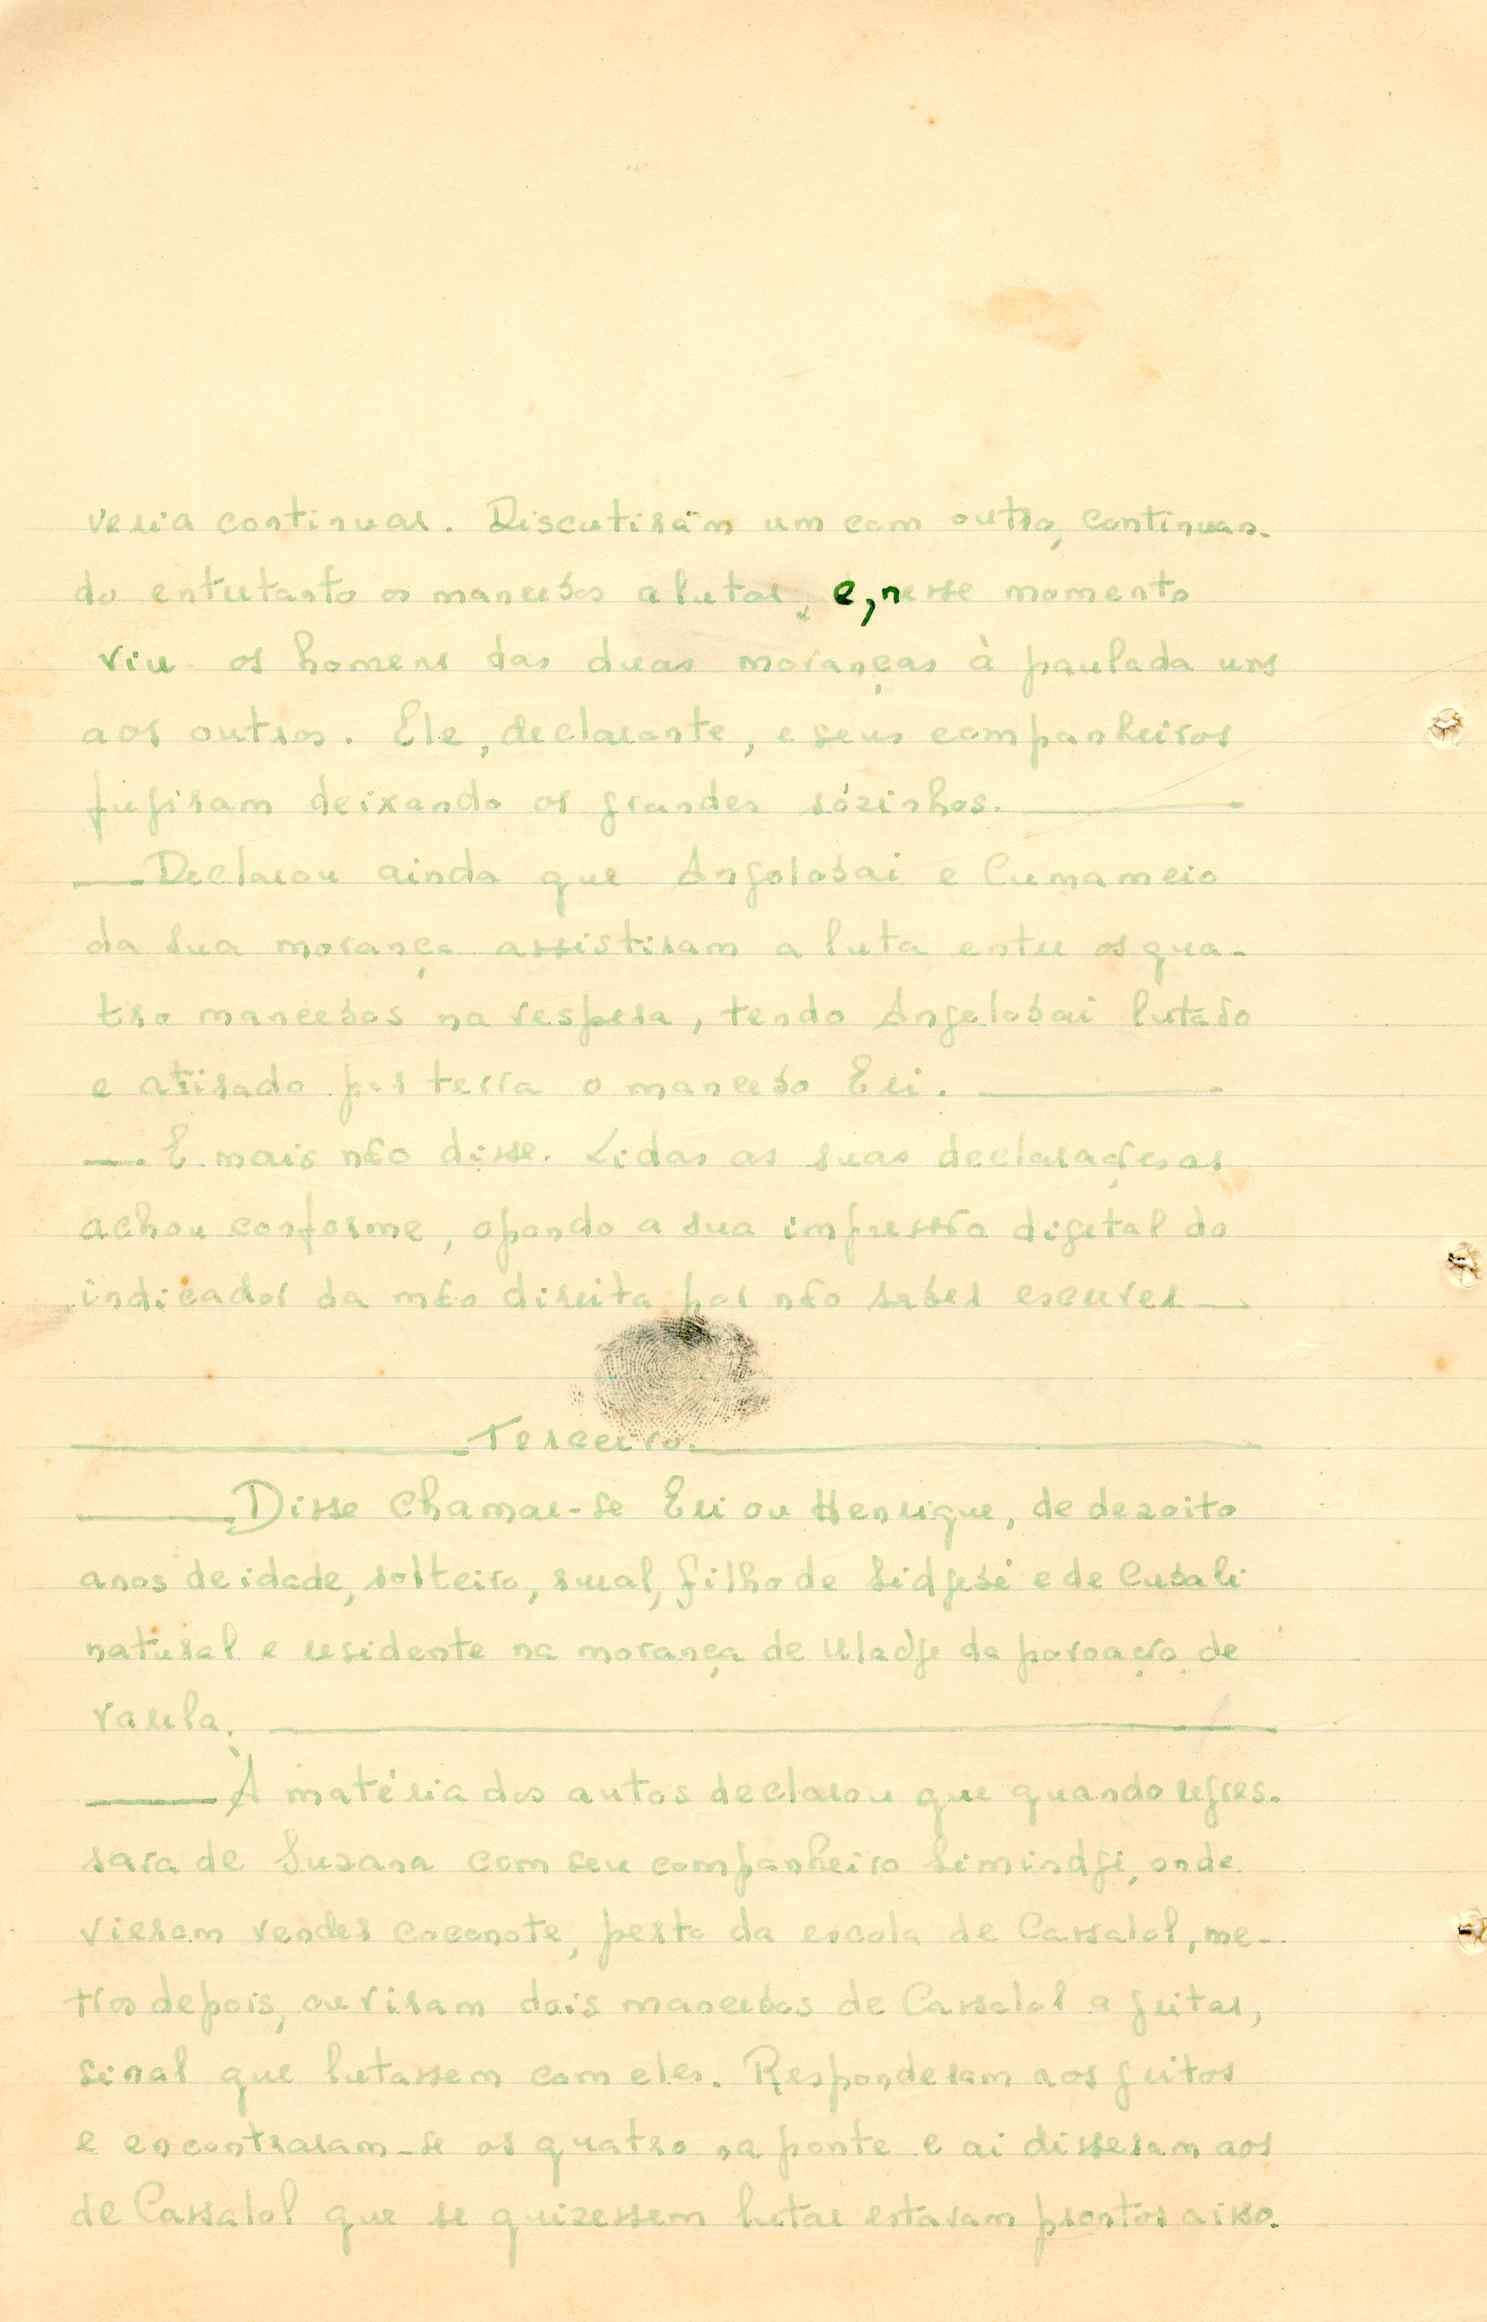 veria continuar. Discutiram um com outro, continuan-
do entretanto os mancebos a lutar, e, nesse momento
viu os homens das duas moranças à paulada uns
aos outros. Ele, declarante, e seus companheiros
fugiram deixando os grandes sózinhos.
Declarou ainda que Angolabai e Cumameio
da sua morança assistiram a luta entre os qua-
tro mancebos na vespera, tendo Angolabai lutado
e atirado por terra o mancebo Eri.
E mais não disse. Lidas as suas declarações as
achou conforme, opondo a sua impressão digital do
indicador da mão direita por não saber escrever
Terceiro.
Disse chamar-se Eri ou Henrique, de dezoito
anos de idade, solteiro, rural, filho de Sidjebé e de Cubali
natural e residente na morança de Uladje da povoação de
Varela.
À matéria dos autos declarou que quando regres-
sara de Suzana com seu companheiro Simindji, onde
vieram vender coconote, perto da escola de Cassalol, me-
tros depois, ouviram dois mancebos de Cassalol a gritar,
sinal que lutassem com eles. Responderam aos gritos
e encontraram-se os quatro na ponte e ai disseram aos
de Cassalol que se quizessem lutar estavam prontos a isso.